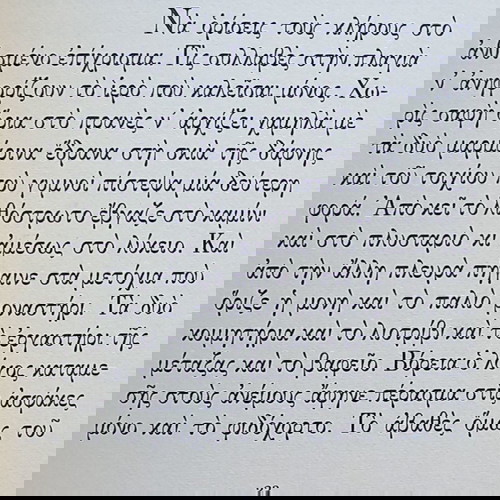 Νὰ ὁρίσεις τοὺς κλήρους στὸ
ἐπίχρισμα. Τὶς συλλαβὲς στὴν πλαγιὰ
ν' ἀνηφορίζουν τὸ ἱερὸ ποὺ καλεῖσαι μόνος. Χω-
ρὶς στὸ πρανὲς ν' ἀρχίζει χαμηλὰ μὲ
τὰ δυὸ μαρμάρινα ἕδρανα στὴ σκιὰ τῆς δάφνης
καὶ τοῦ τοιχίου ποὺ γυμνοὶ πίστεψα μιὰ δεύτερη
φορά. Ἀπὸ κεῖ τὸ λιθόστρωτο ἔβγαζε στὸ καμίνι
καὶ στὸ πλυσταριὸ κι ἀμέσως στὸ λύκειο. Καὶ
ἀπὸ τὴν ἄλλη πλευρὰ στὰ μετόχια ποὺ
ὅριζε ἡ μονὴ καὶ τὸ παλιὸ μοναστήρι. Τὰ δυὸ
κοιμητήρια καὶ τὸ λιοτρίβι καὶ τὸ ἐργαστήρι τῆς
μέταξας καὶ τὸ βαφεῖο. Βόρεια ὁ λόγος
στοὺς ἀνέμους ἄφηνε πέρασμα στὶς
μόνο καὶ τὸ Τὸ ἀβαθὲς ὅμως τοῦ